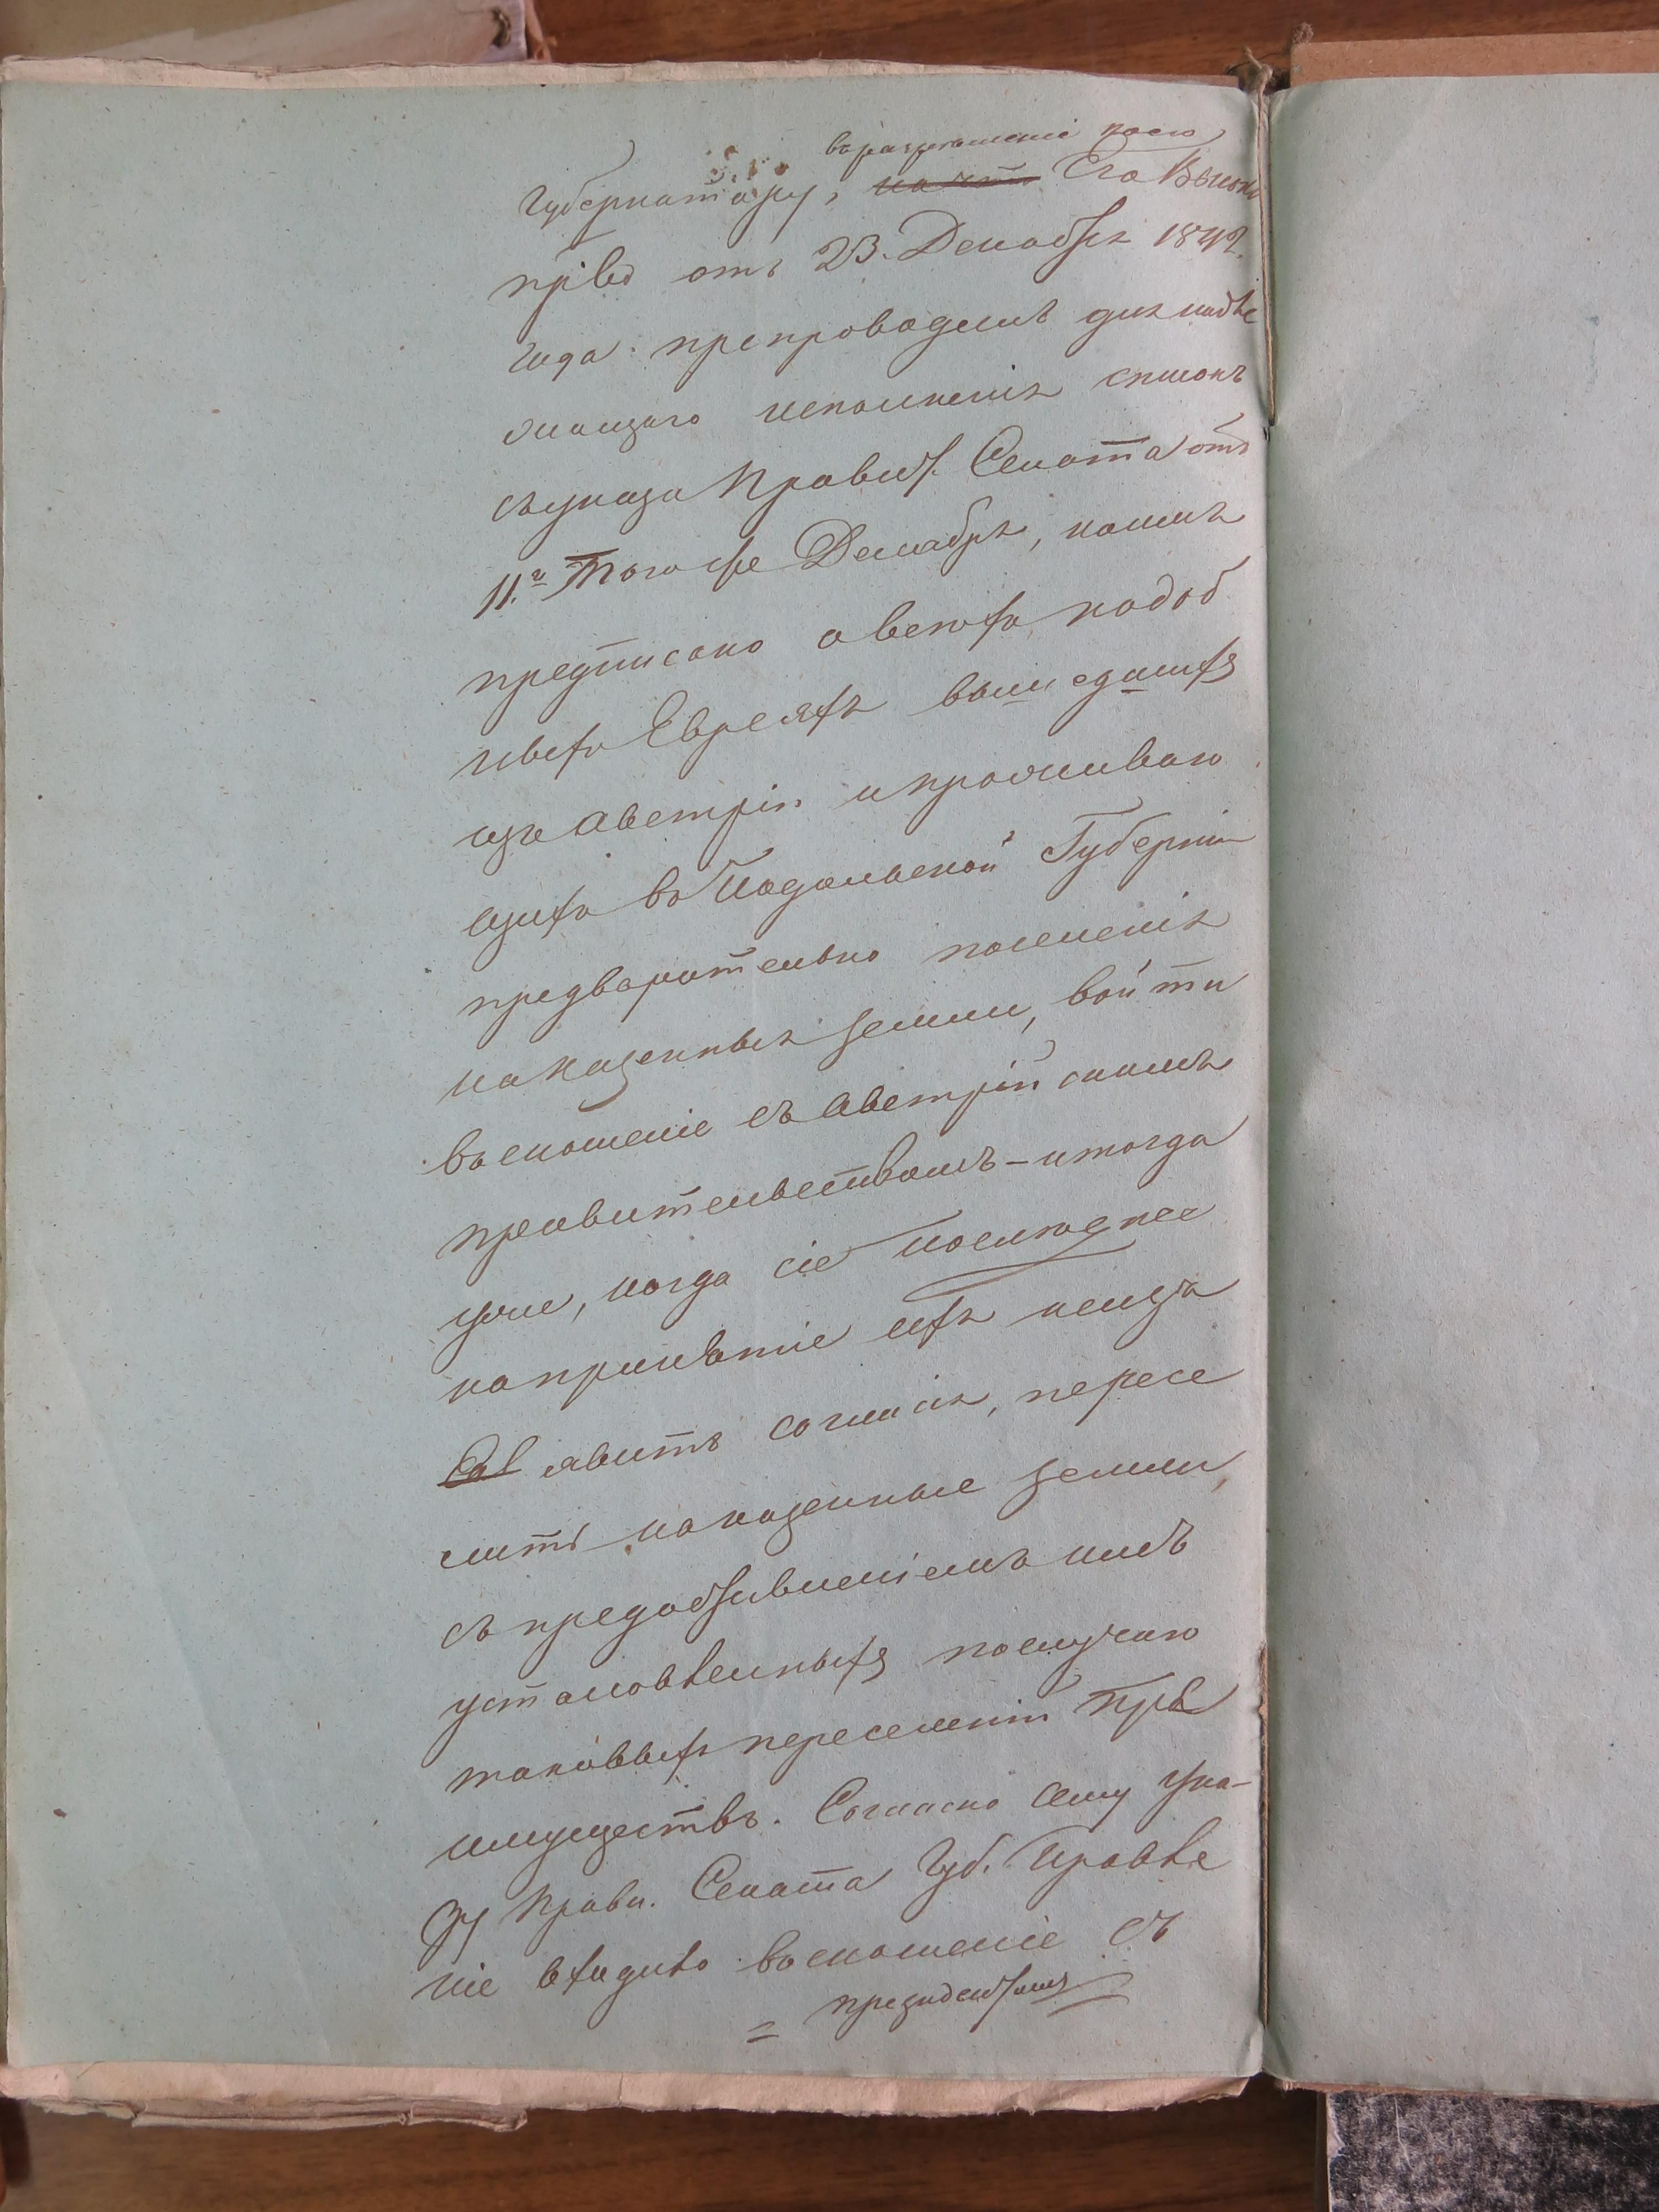 въ разрешеніе коего
Губернатору, на что Его Высоко
прівд отъ 23. Декабря 1842.
года препроводилъ для надле
жащаго исполненія списокъ
съ указа Правит. Сената отъ
11.го того же Декабря, коимъ
предписано о всехъ подоб
ныхъ Евреяхъ вышедшихъ
изъ Австріи и проживаю
щихъ въ Подольской Губерніи
предварительно поселенія
на казенныя земли, войти
въ сношеніе съ Австрійскимъ
правительствомъ – и тогда
уже, когда сіе последнее
на принятіе ихъ не изъ
явитъ согласія, пересе
лить на казенные земли,
съ предоставленіемъ имъ
установленныхъ по случаю
таковыхъ переселеній пре
имуществъ. Согласно сему ука-
зу Прави. Сената Губ. Правле
ніе входило въ сношеніе съ
= президентомъ